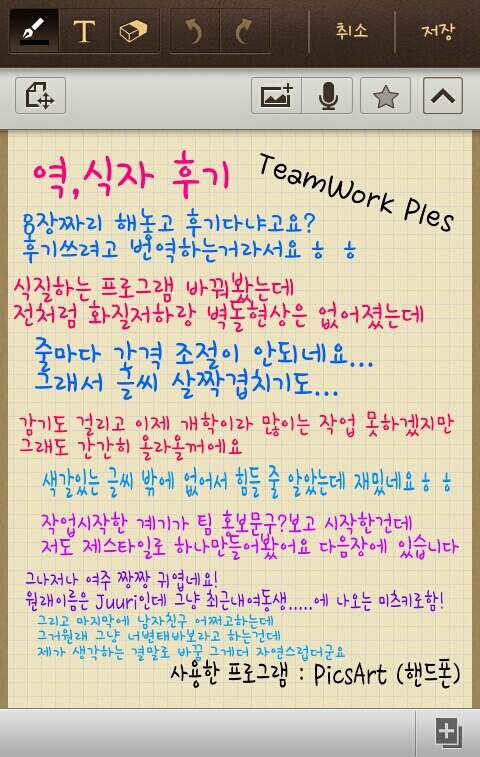 T
취소
저장
역,식자 후기
TeamWork Ples
8장짜리 해놓고 후기다냐고요?
후기쓰려고 번역하는거라서요 ㅎ ㅎ
식질하는 프로그램 바꿔봤는데
전처럼 화질저하랑 벽돌현상은 없어졌는데
줄마다 가격 조절이 안되네요...
그래서 글씨 살짝겹치기도...
감기도 걸리고 이제 개학이라 많이는 작업 못하겠지만
그래도 간간히 올라올꺼에요
색갈있는 글씨 밖에 없어서 힘들 줄 알았는데 재밌네요ㅎㅎ
작업시작한 계기가 팀 홍보문구?보고 시작한건데
저도 제스타일로 하나만들어봤어요 다음장에 있습니다
그나저나 여주 짱짱 귀엽네요!
원래이름은 Juuri인데 그냥 최근내여동생.....에 나오는 미츠키로함!
그리고 마지막에 남자친구 어쩌고하는데
그거원래 그냥 너변태바보라고 하는건데
제가 생각하는 결말로 바꿈 그게더 자연스럽더군요
사용한 프로그램 : PicsArt (핸드폰)